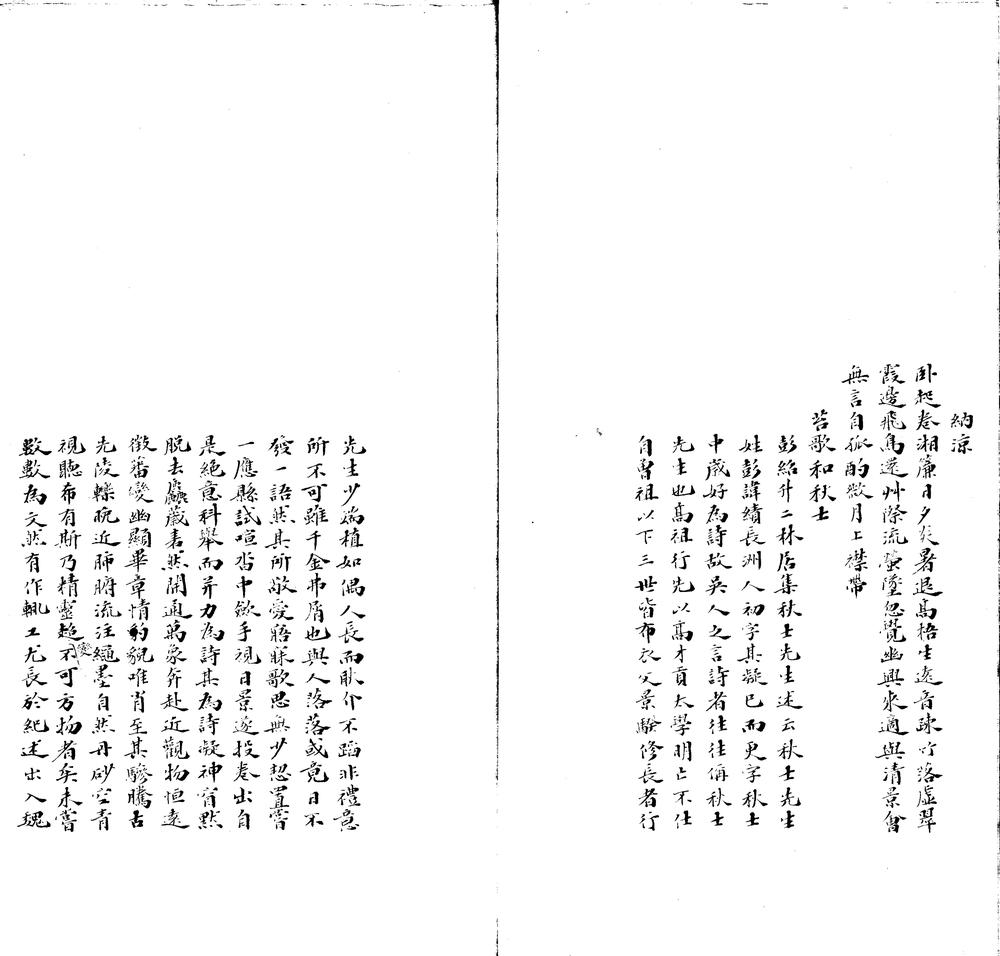 納涼
卧起卷湘簾日夕炎暑退高梧生遠音疎竹落虛翠
霞邊飛鳥還艸際流螢墮忽覺幽興來適與清景會
無言自孤酌微月上襟帶
苔歌和秋士
彭紹升二林居集秋士先生述云秋士先生
姓彭諱績長洲人初字其凝已而更字秋士
中歲好為詩故吳人之言詩者往往偁秋士
先生也高祖行先以高才貢太學明亡不仕
自曾祖以下三世皆布衣父景騄修長者行
先生少端植如偶人長而耿介不蹈非禮意
所不可雖千金弗屑也與人落落或竟日不
發一語然其所敬愛寤寐歌思無少恝置嘗
一應縣試喧沓中斂手視日景遂投卷出自
是絕意科舉而并力為詩其為詩凝神窅默
脫去蠭蔵砉然開通萬象奔赴近觀物恒遠
徵蕃變幽顯畢章情豹貌唯肖至其驂騰古
先陵轢晚近肺腑流注繩墨自然丹砂空青
視聽布有斯乃精靈趍變不可方物者矣未嘗
數數為文然有作輒工尤長於紀述出入塊